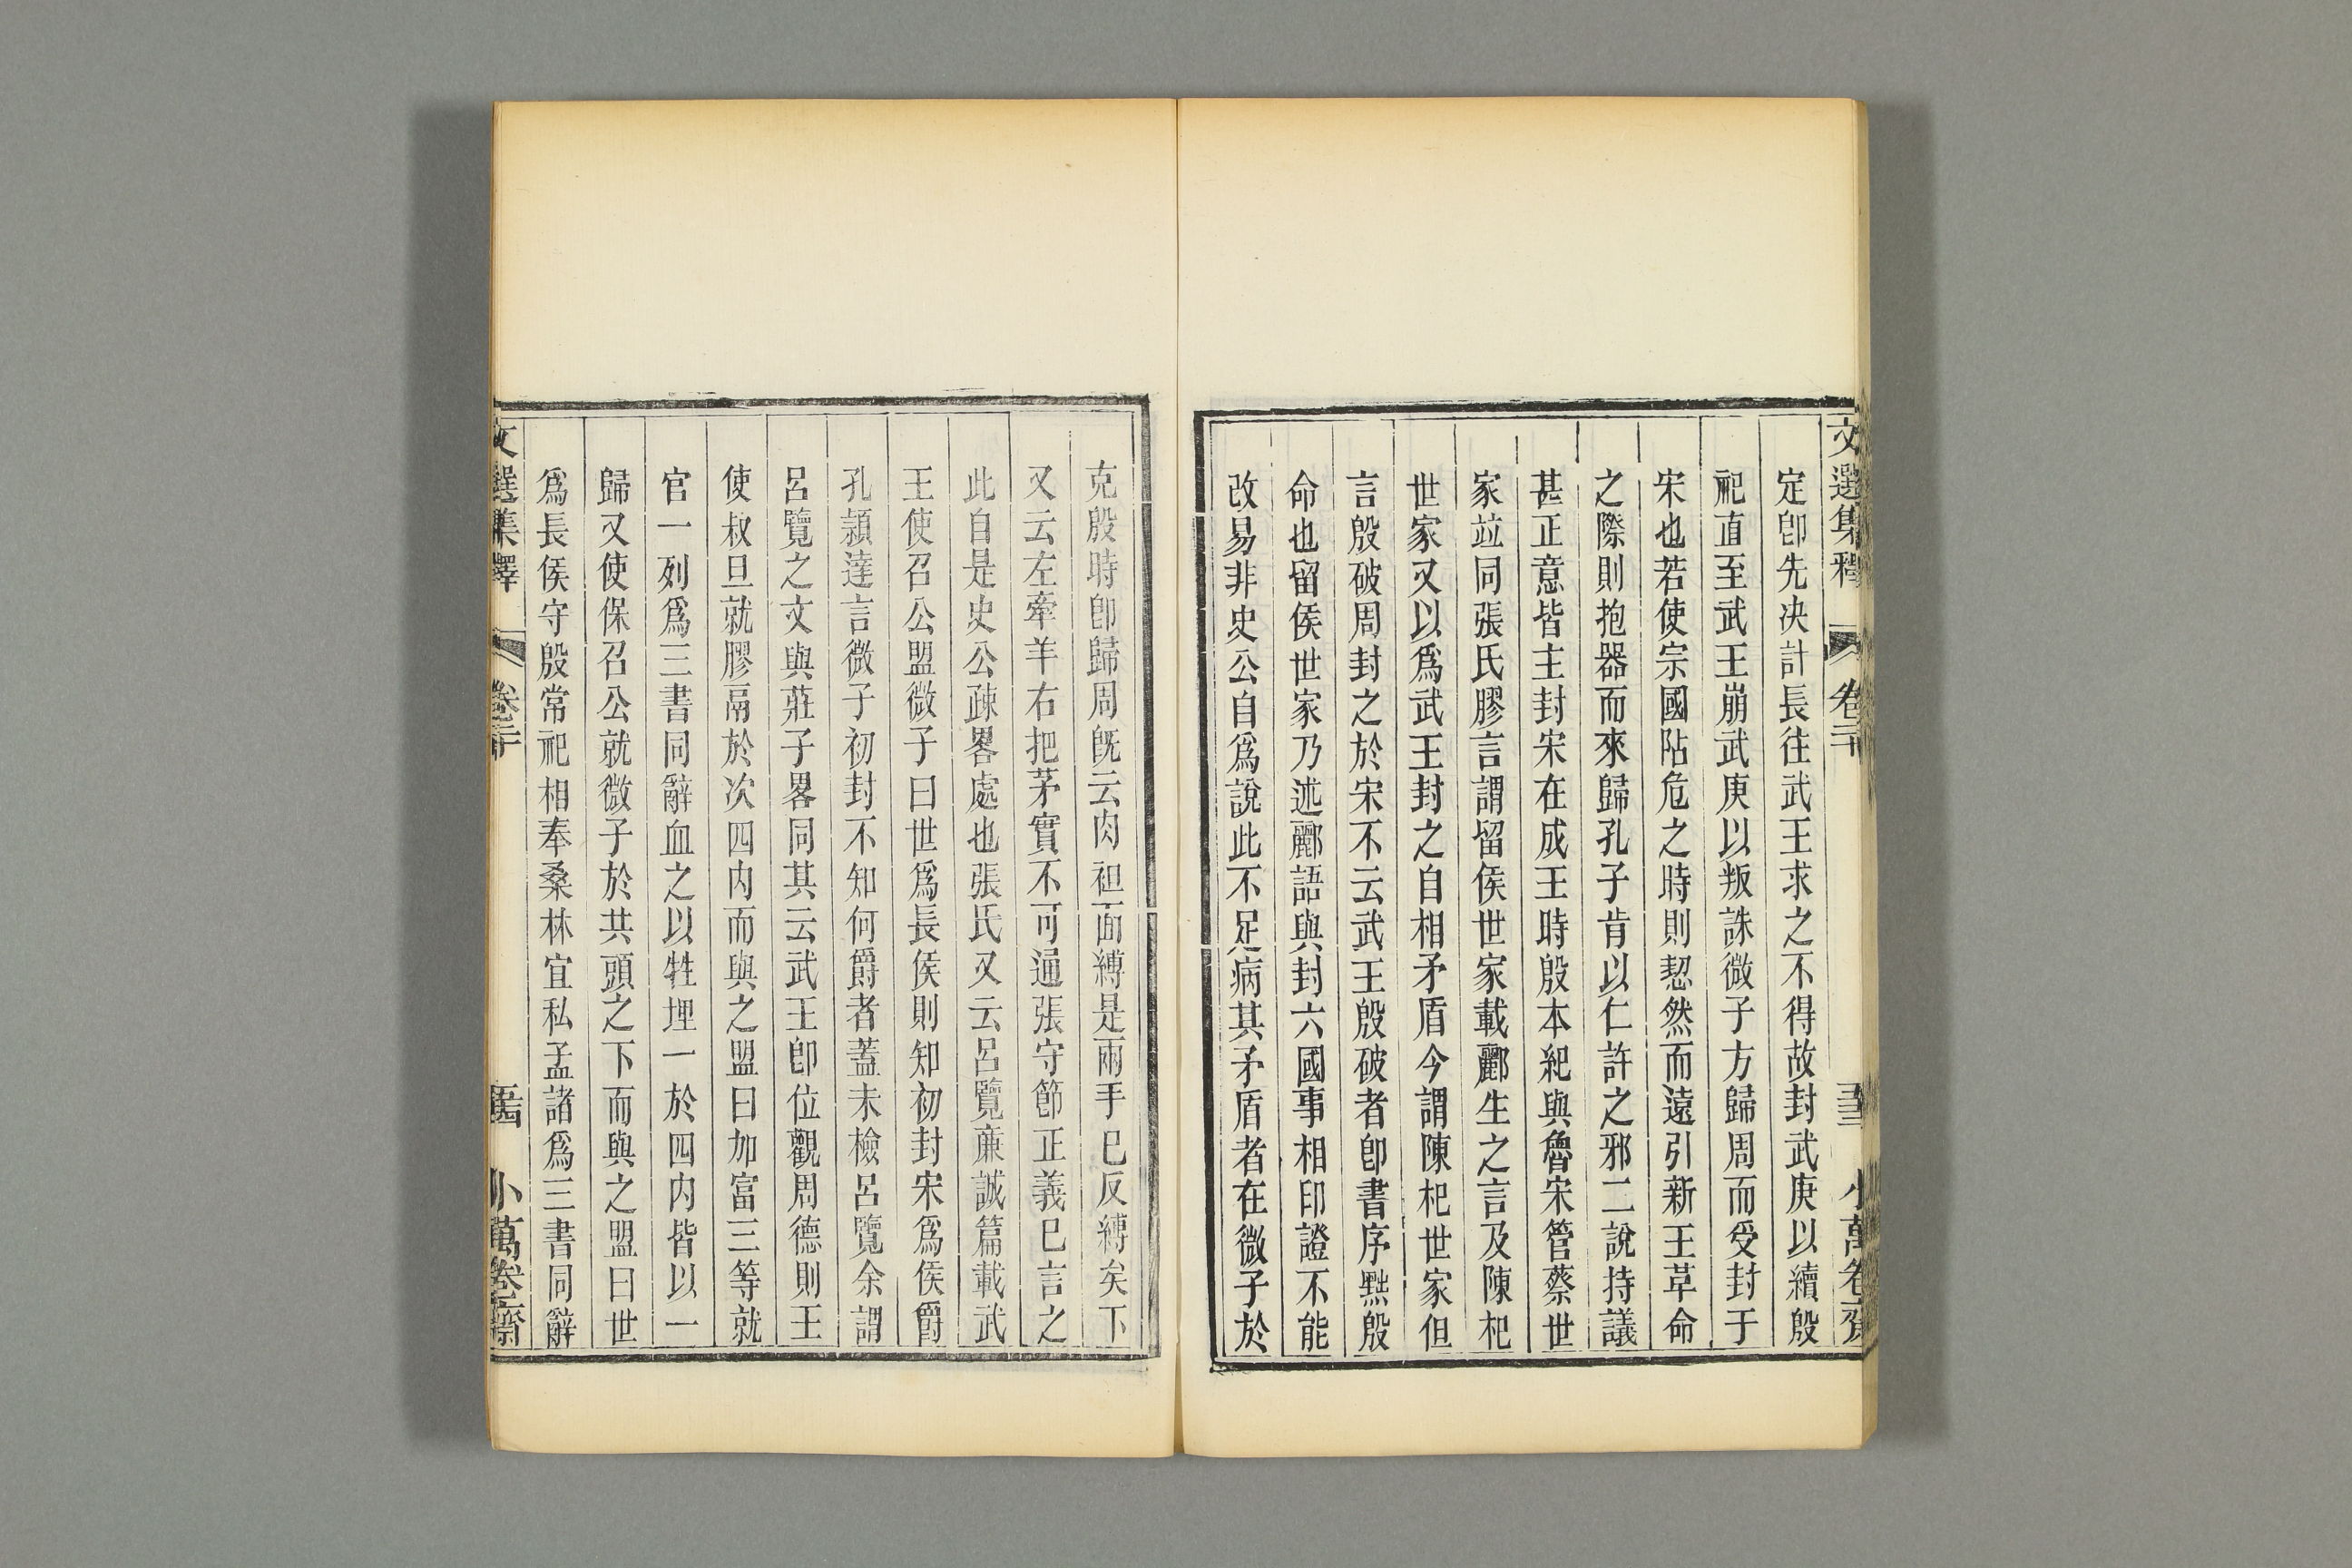 文選集釋 卷二十 小萬卷齋
定卽先决計長往武王求之不得故封武庚以續殷
祀直至武王崩武庚以叛誅微子方歸周而受封于
宋也若使宗國阽危之時則恝然而遠引新王革命
之際則抱器而來歸孔子肯以仁許之邪二說持議
甚正意皆主封宋在成王時殷本紀與魯宋管蔡世
家竝同張氏膠言謂留侯世家載酈生之言及陳杞
世家又以爲武王封之自相矛盾今謂陳杞世家但
言殷破周封之於宋不云武王殷破者卽書序黜殷
命也留侯世家乃述酈語與封六國事相印證不能
改易非史公自爲說此不足病其矛盾者在微子於
克殷時卽歸周旣云肉袒面縛是兩手已反縛矣下
又云左牽羊右把茅實不可通張守節正義已言之
此自是史公疎畧處也張氏又云呂覽亷誠篇載武
王使召公盟微子曰世爲長侯則知初封宋爲侯爵
孔頴達言微子初封不知何爵者蓋未檢呂覽余謂
呂覽之文與莊子畧同其云武王卽位觀周德則王
使叔旦就膠鬲於次四内而與之盟曰加富三等就
官一列爲三書同辭血之以牲埋一於四内皆以一
歸又使保召公就微子於共頭之下而與之盟曰世
爲長侯守殷常祀相奉桑林宜私孟諸爲三書同辭
文選集釋 卷二十 小萬卷齋